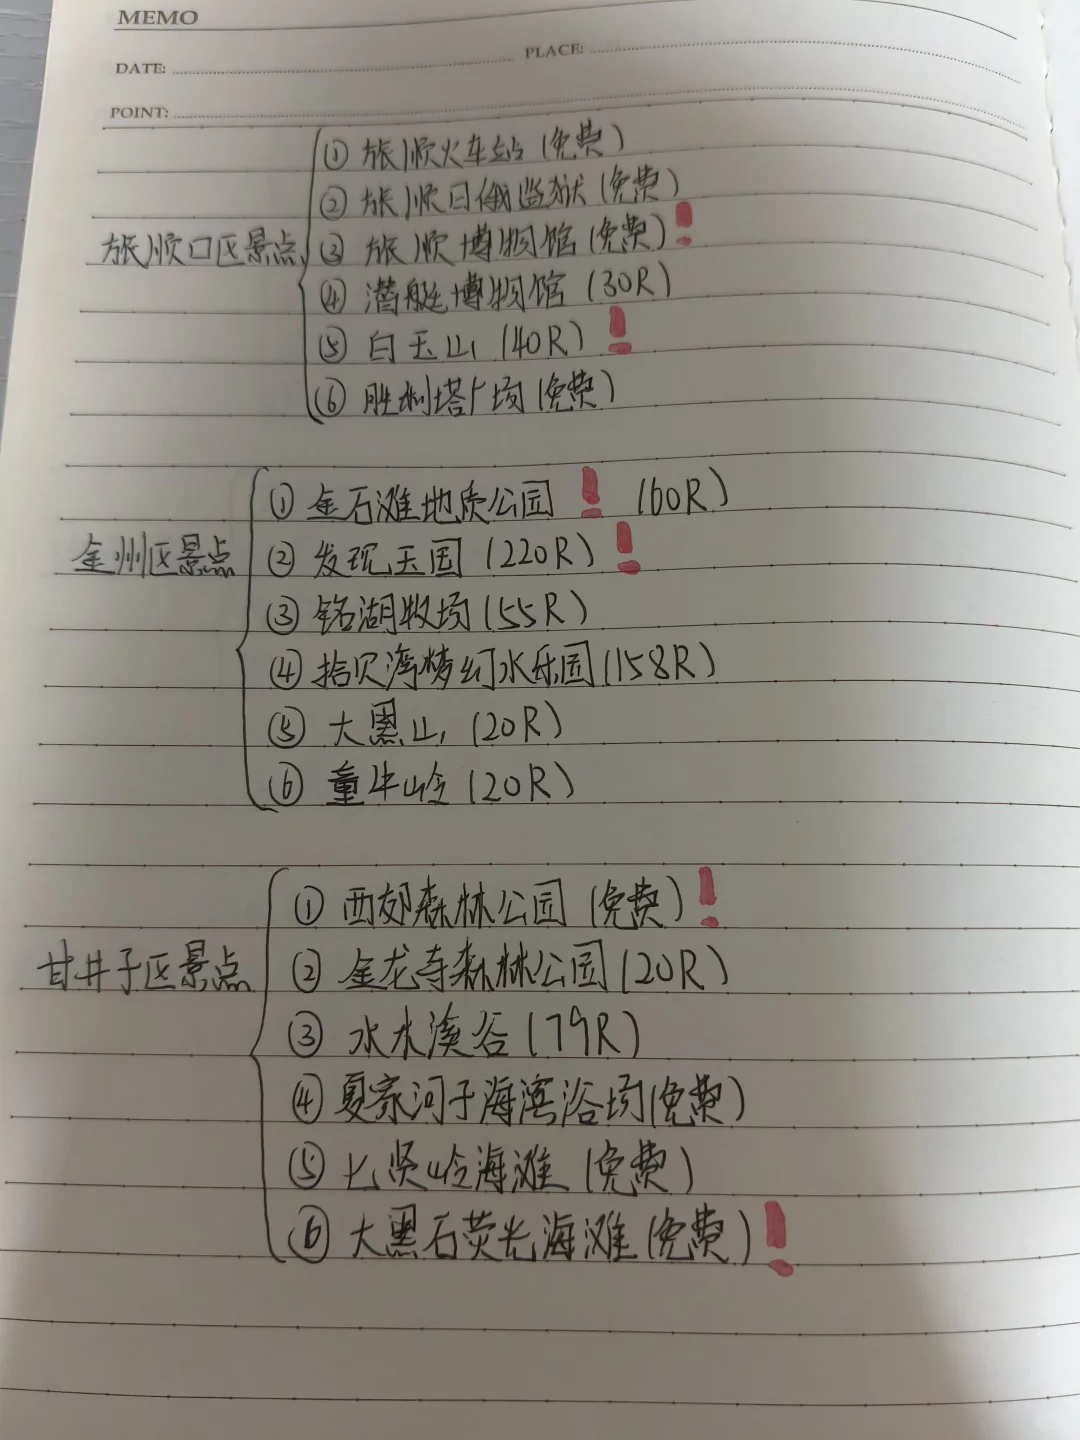 MEMO
DATE:
PLACE:
POINT:
旅顺口区景点
① 旅顺火车站 (免费)
② 旅顺日俄监狱 (免费)
③ 旅顺博物馆 (免费) !
④ 潜艇博物馆 (30R)
⑤ 白玉山 (40R) !
⑥ 胜利塔广场 (免费)
金州区景点
① 金石滩地质公园 ! (60R)
② 发现王国 (220R) !
③ 铭湖牧场 (55R)
④ 拾贝湾梦幻水乐园 (158R)
⑤ 大黑山 (20R)
⑥ 童牛岭 (20R)
甘井子区景点
① 西郊森林公园 (免费) !
② 金龙寺森林公园 (20R)
③ 水木溪谷 (79R)
④ 夏家河子海滨浴场 (免费)
⑤ 七贤岭海滩 (免费)
⑥ 大黑石荧光海滩 (免费) !